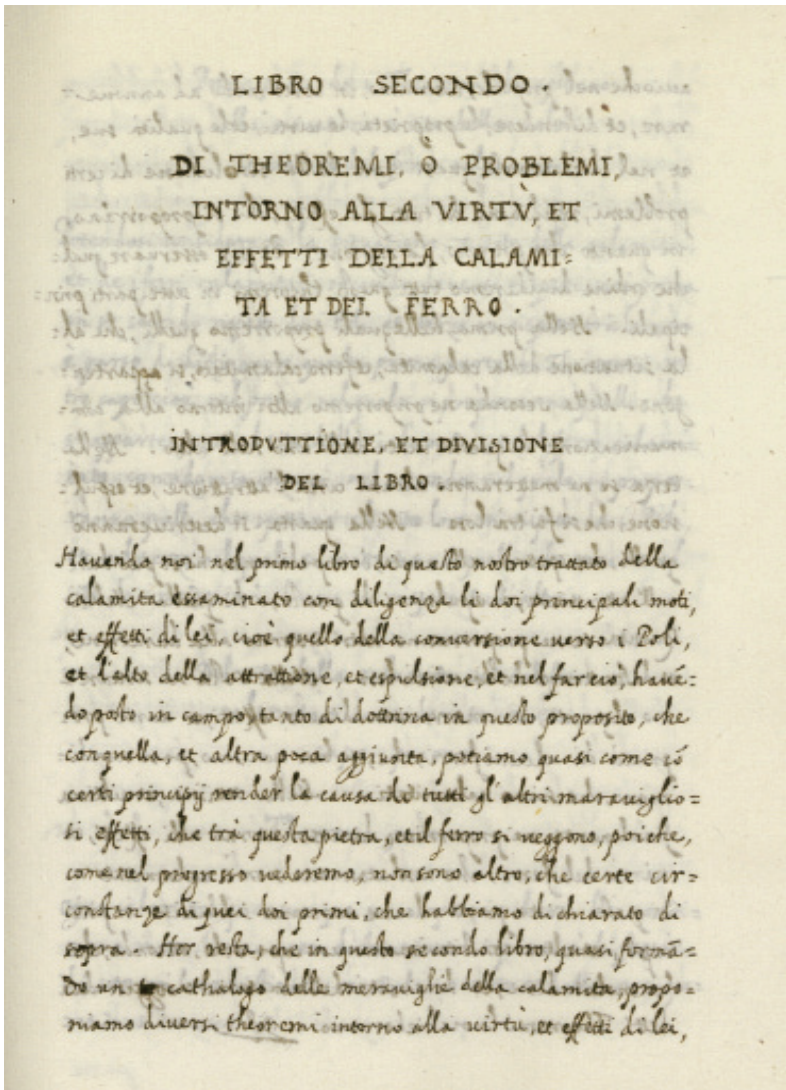 LIBRO SECONDO.
DI THEOREMI, Ò PROBLEMI,
INTORNO ALLA VIRTÙ, ET
EFFETTI DELLA CALAMI=
TA ET DEL FERRO.
INTRODVTTIONE, ET DIVISIONE
DEL LIBRO.
Hauendo noi nel primo libro di questo nostro trattato della
calamita essaminato con diligenza li doi principali moti,
et effetti di lei, cioè quello della conuersione uerso i Poli,
et l'alto della attrattione, et espulsione, et nel far ciò, hauẽ=
do posto in campo tanto di dottrina in questo proposito, che
con quella, et altra poca aggiunta, potiamo quasi come cõ
certi principij render la causa di tutti gl'altri marauiglio=
si effetti, che trà questa pietra, et il ferro si ueggono, poiche,
come nel progresso uederemo, non sono altro, che certe cir=
constanze di quei doi primi, che habbiamo dichiarato di
sopra. Hor resta, che in questo secondo libro, quasi formã=
do un cathalogo delle merauiglie della calamita, propo=
niamo diuersi theoremi intorno alla uirtù, et effetti di lei,